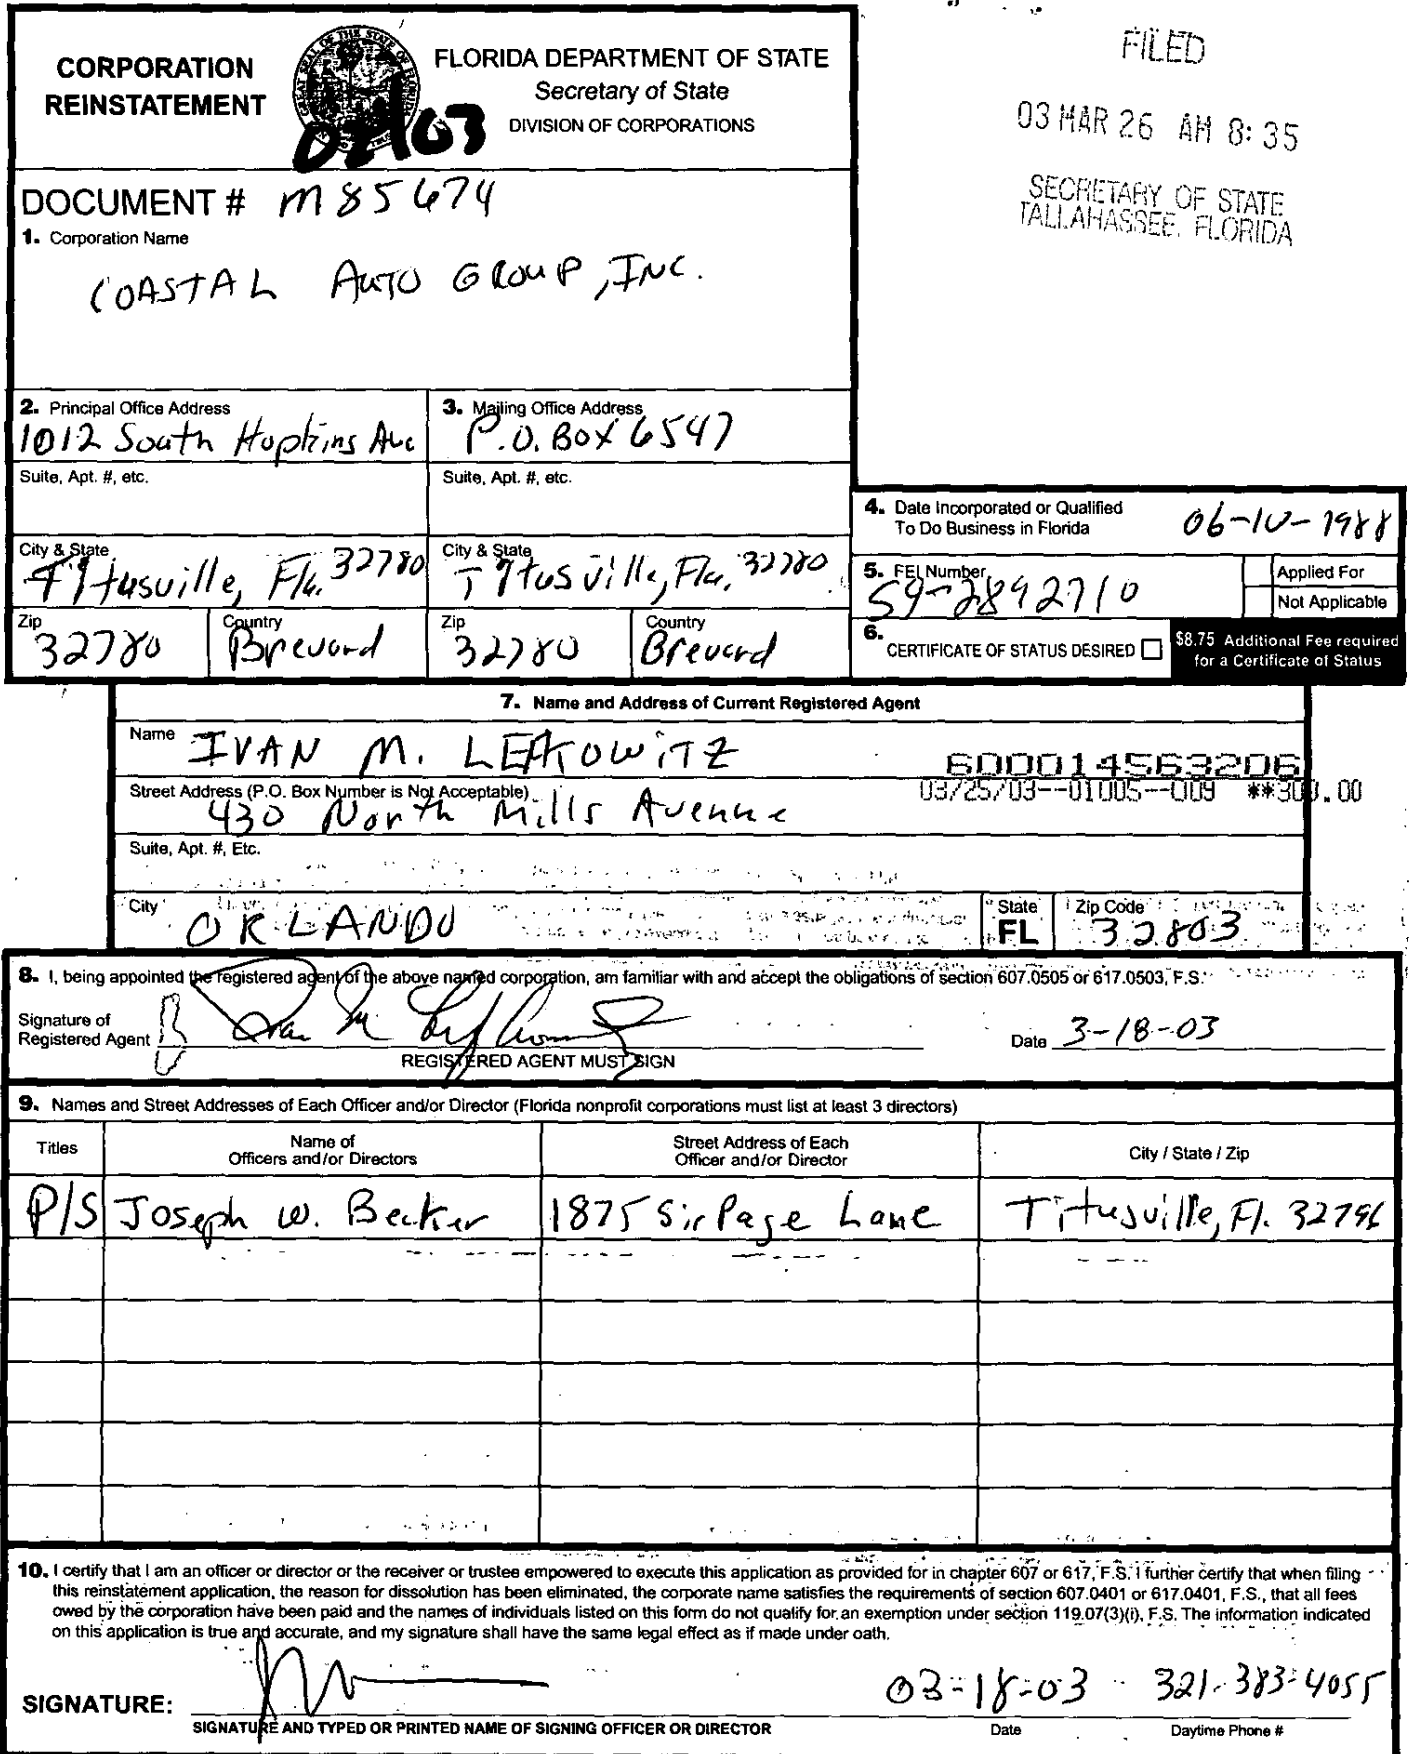 CORPORATION REINSTATEMENT
FLORIDA DEPARTMENT OF STATE
Secretary of State
DIVISION OF CORPORATIONS
FILED
03 MAR 26 AM 8:35
SECRETARY OF STATE
TALLAHASSEE, FLORIDA
DOCUMENT # M85674
1. Corporation Name
COASTAL AUTO GROUP, INC.
2. Principal Office Address
1012 South Hopkins Ave
3. Mailing Office Address
P.O. Box 6547
Suite, Apt. #, etc.
Suite, Apt. #, etc.
4. Date Incorporated or Qualified
To Do Business in Florida
06-10-1988
City & State
Titusville, Fla. 32780
City & State
Titusville, Fla. 32780
5. FEI Number
59-2892710
Applied For
Not Applicable
Zip
32780
Country
Brevard
Zip
32780
Country
Brevard
6. CERTIFICATE OF STATUS DESIRED
$8.75 Additional Fee required
for a Certificate of Status
7. Name and Address of Current Registered Agent
Name IVAN M. LEFKOWITZ
600014563206
03/25/03--01005--009 **300.00
Street Address (P.O. Box Number is Not Acceptable)
430 North Mills Avenue
Suite, Apt. #, Etc.
City ORLANDO
State
FL
Zip Code
32803
8. I, being appointed the registered agent of the above named corporation, am familiar with and accept the obligations of section 607.0505 or 617.0503, F.S.
Signature of
Registered Agent
Date 3-18-03
REGISTERED AGENT MUST SIGN
9. Names and Street Addresses of Each Officer and/or Director (Florida nonprofit corporations must list at least 3 directors)
Titles
Name of
Officers and/or Directors
Street Address of Each
Officer and/or Director
City / State / Zip
P/S Joseph W. Becker 1875 Sir Page Lane Titusville, Fl. 32796
10. I certify that I am an officer or director or the receiver or trustee empowered to execute this application as provided for in chapter 607 or 617, F.S. I further certify that when filing
this reinstatement application, the reason for dissolution has been eliminated, the corporate name satisfies the requirements of section 607.0401 or 617.0401, F.S., that all fees
owed by the corporation have been paid and the names of individuals listed on this form do not qualify for an exemption under section 119.07(3)(i), F.S. The information indicated
on this application is true and accurate, and my signature shall have the same legal effect as if made under oath.
SIGNATURE:
03-18-03 321-383-4055
SIGNATURE AND TYPED OR PRINTED NAME OF SIGNING OFFICER OR DIRECTOR
Date
Daytime Phone #